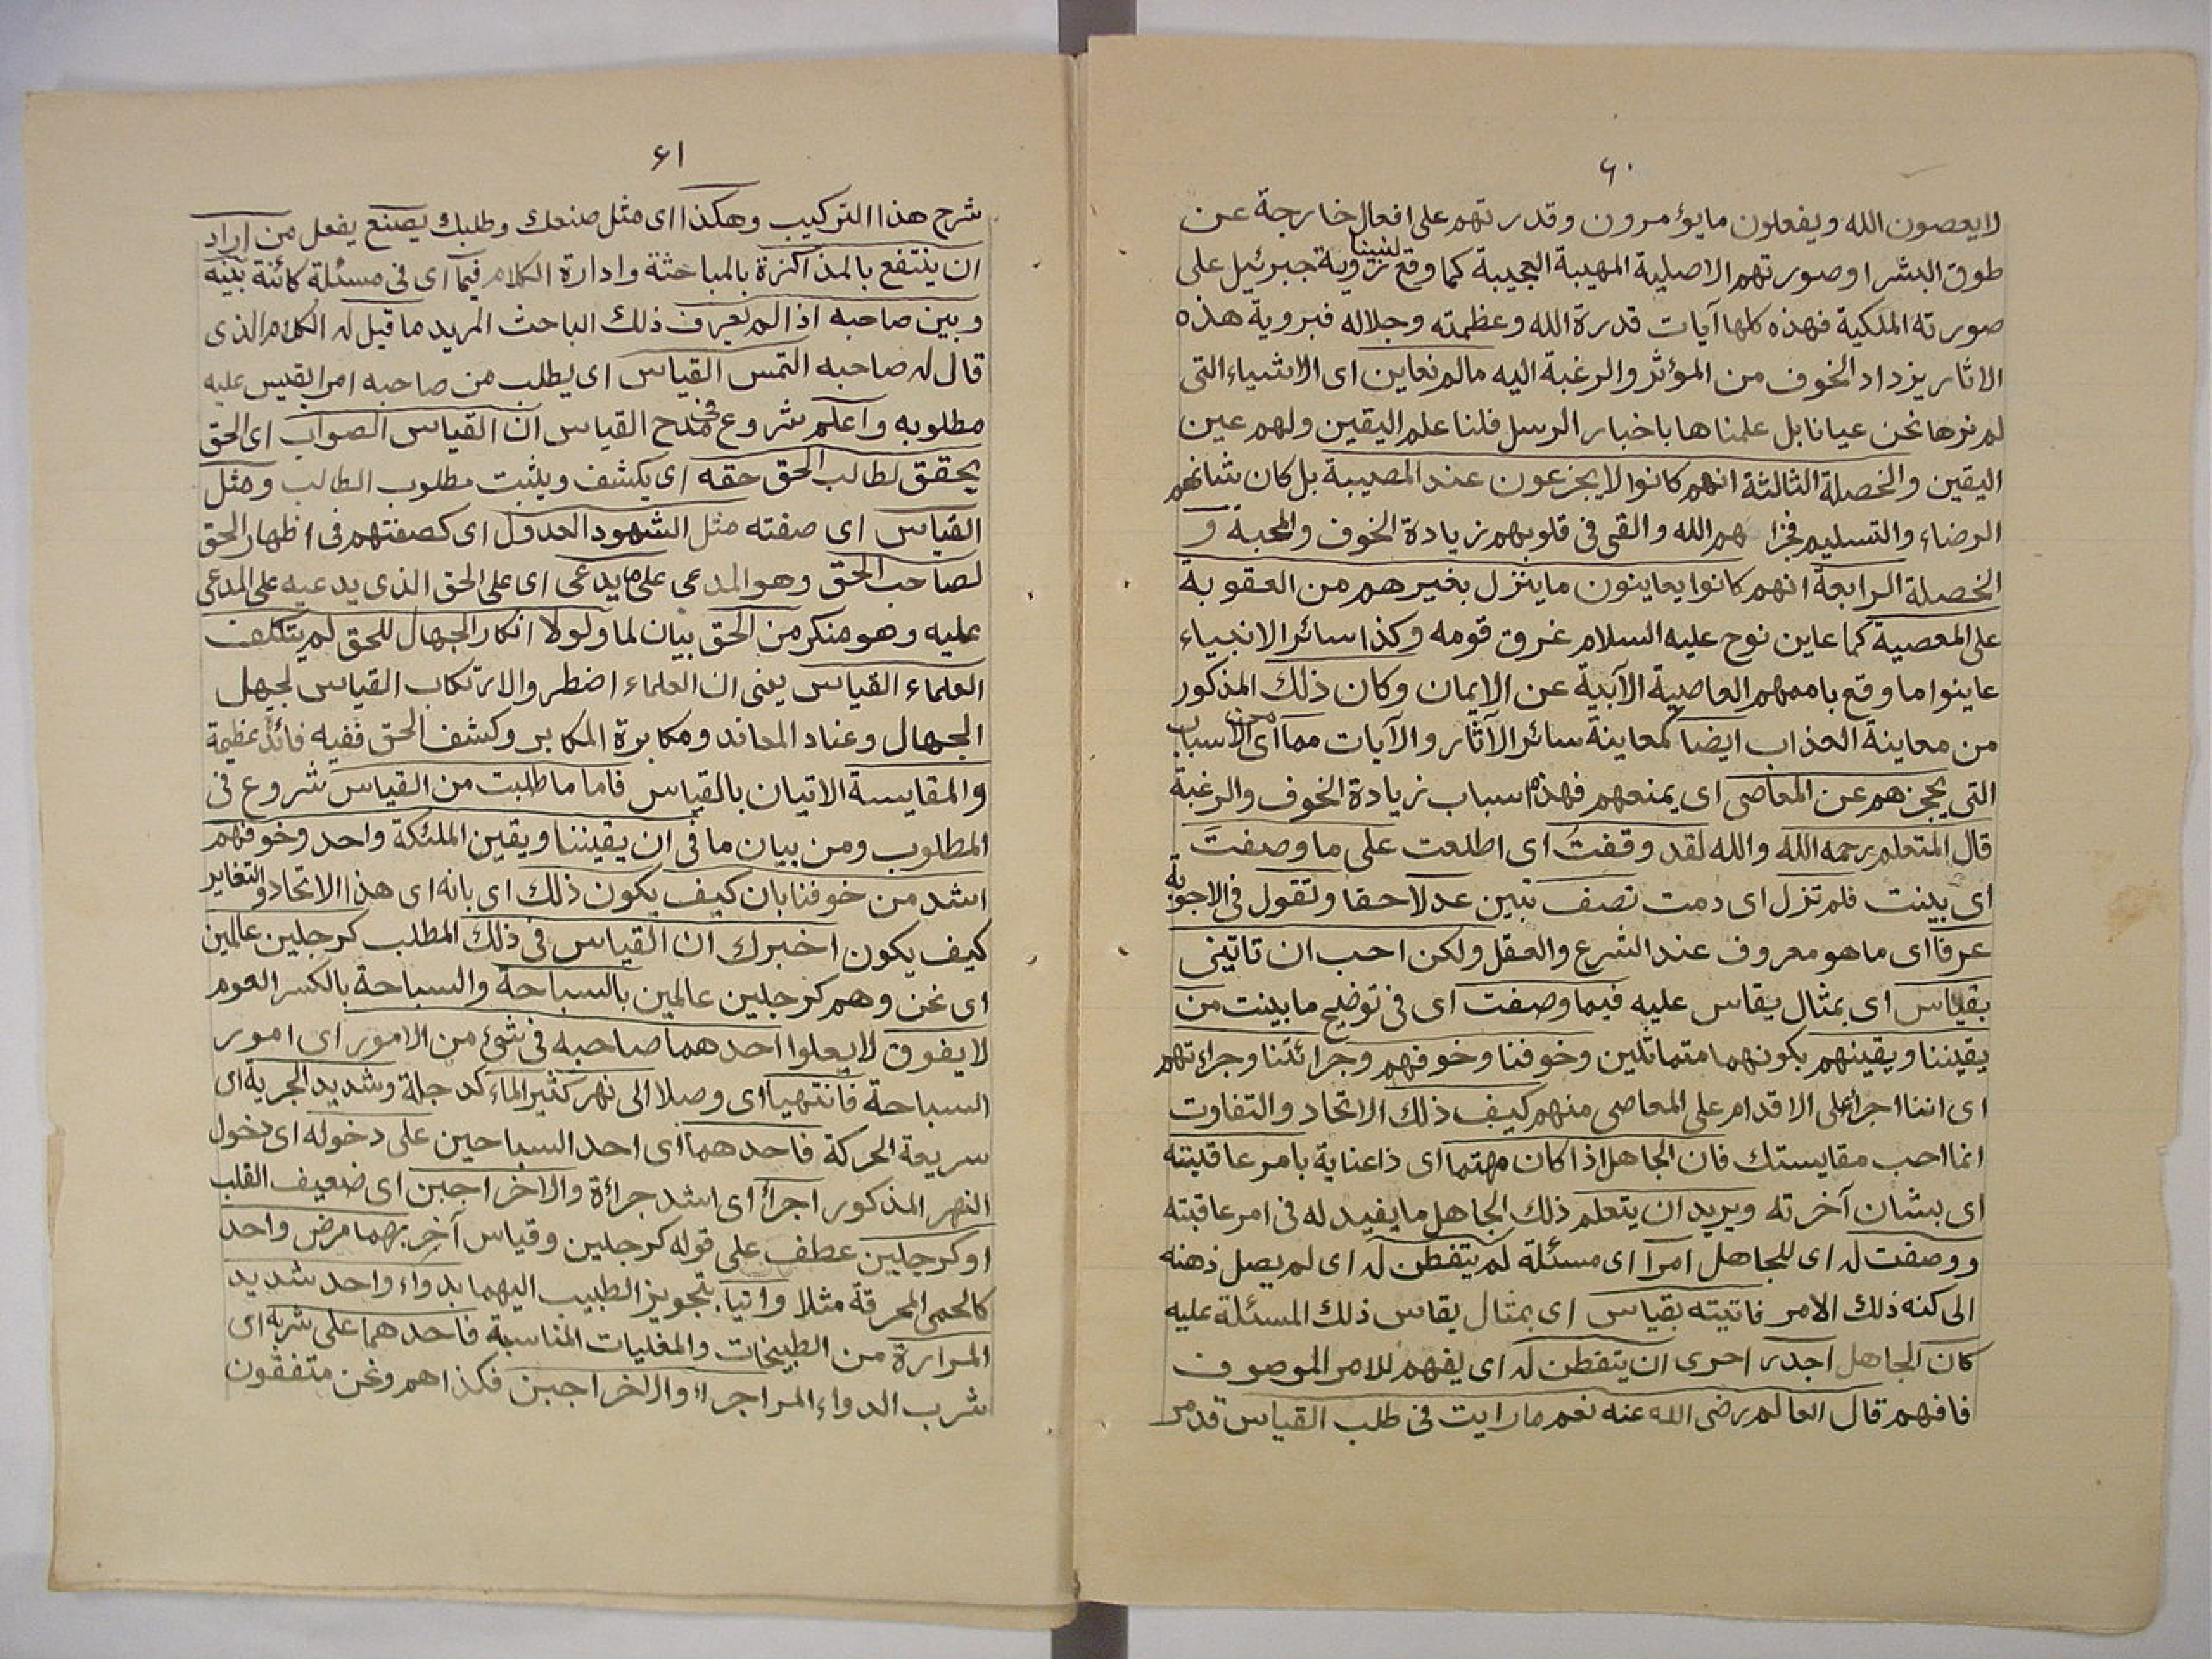 ٦٠
لا يعصون الله ويفعلون ما يؤمرون وقدرتهم على افعال خارجة عن
طوق البشر او صورتهم الاصلية المهيبة العجيبة كما وقع لنبينا رؤية جبرئيل على
صورته الملكية فهذه كلها آيات قدرة الله وعظمته وجلاله فبروية هذه
الاثار يزداد الخوف من المؤثر والرغبة اليه مالم نعاين اى الاشياء التى
لم نرها نحن عيانا بل علمناها باخبار الرسل فلنا علم اليقين ولهم عين
اليقين والخصلة الثالثة انهم كانوا لا يجزعون عند المصيبة بل كان شانهم
الرضاء والتسليم فجزاهم الله والقى فى قلوبهم زيادة الخوف والمحبة و
الخصلة الرابعة انهم كانوا يعاينون ما ينزل بغيرهم من العقوبة
على المعصية كما عاين نوح عليه السلام غروق قومه وكذا سائر الانبياء
عاينوا ما وقع باممهم العاصية الآبية عن الايمان وكان ذلك المذكور
من معاينة العذاب ايضا كمعاينة سائر الآثار والآيات مما اى من الاسباب
التى يحجزهم عن المعاصى اى يمنعهم فهذه اسباب زيادة الخوف والرغبة
قال المتعلم رحمه الله والله لقد وقفتُ اى اطلعت على ما وصفتَ
اى بينت فلم تزل اى دمت تصف تبين عدلا حقا وتقول فى الاجوبة
عرفا اى ما هو معروف عند الشرع والعقل ولكن احب ان تاتينى
بقياس اى بمثال يقاس عليه فيما وصفت اى فى توضيح ما بينت من
يقيننا ويقينهم بكونهما متماثلين وخوفنا وخوفهم وجرائتنا وجراءتهم
اى اننا اجرأ على الاقدام على المعاصى منهم كيف ذلك الاتحاد والتفاوت
انما احب مقايستك فان الجاهل اذا كان مهتما اى ذا عناية بامر عاقبته
اى بشان آخرته ويريد ان يتعلم ذلك الجاهل ما يفيد له فى امر عاقبته
ووصفت له اى للجاهل امرا اى مسئلة لم يتفطن له اى لم يصل ذهنه
الى كنه ذلك الامر فاتيته بقياس اى بمثال يقاس ذلك المسئلة عليه
كان الجاهل اجدر احرى ان يتفطن له اى يفهم للامر الموصوف
فافهم قال العالم رضى الله عنه نعم ما رايت فى طلب القياس قد مر
٦١
شرح هذا التركيب وهكذا اى مثل صنعك وطلبك يصنع يفعل من اراد
ان ينتفع بالمذاكرة بالمباحثة وادارة الكلام فيما اى فى مسئلة كائنة بينه
وبين صاحبه اذا لم يعرف ذلك الباحث المريد ما قيل له الكلام الذى
قال له صاحبه التمس القياس اى يطلب من صاحبه امرا يقيس عليه
مطلوبه واعلم شروع فى مدح القياس ان القياس الصواب اى الحق
يحقق لطالب الحق حقه اى يكشف ويثبت مطلوب الطالب ومثل
القياس اى صفته مثل الشهود العدول اى كصفتهم فى اظهار الحق
لصاحب الحق وهو المدعى على ما يدعى اى على الحق الذى يدعيه على المدعى
عليه وهو منكر من الحق بيان لما ولولا انكار الجهال للحق لم يتكلف
العلماء القياس يعنى ان العلماء اضطروا لارتكاب القياس لجهل
الجهال وعناد المعاند ومكابرة المكابر وكشف الحق ففيه فائدة عظيمة
والمقايسة الاتيان بالقياس فاما ما طلبت من القياس شروع فى
المطلوب ومن بيان ما فى ان يقيننا ويقين الملئكة واحد وخوفهم
اشد من خوفنا بان كيف يكون ذلك اى بانه اى هذا الاتحاد والتغاير
كيف يكون اخبرك ان القياس فى ذلك المطلب كرجلين عالمين
اى نحن وهم كرجلين عالمين بالسباحة والسباحة بالكسر العوم
لا يفوق لا يعلوا احدهما صاحبه فى شئ من الامور اى امور
السباحة فانتهيا اى وصلا الى نهر كثير الماء كدجلة وشديد الجرية اى
سريعة الحركة فاحدهما اى احد السباحين على دخوله اى دخول
النهر المذكور اجرأ اى اشد جرائة والاخر اجبن اى ضعيف القلب
او كرجلين عطف على قوله كرجلين وقياس آخر بهما مرض واحد
كالحمى المحرقة مثلا واتيا بتجويز الطبيب اليهما بدواء واحد شديد
المرارة من الطبيخات والمغليات المناسبة فاحدهما على شربه اى
شرب الدواء المر اجرأ والاخر اجبن فكذا هم ونحن متفقون